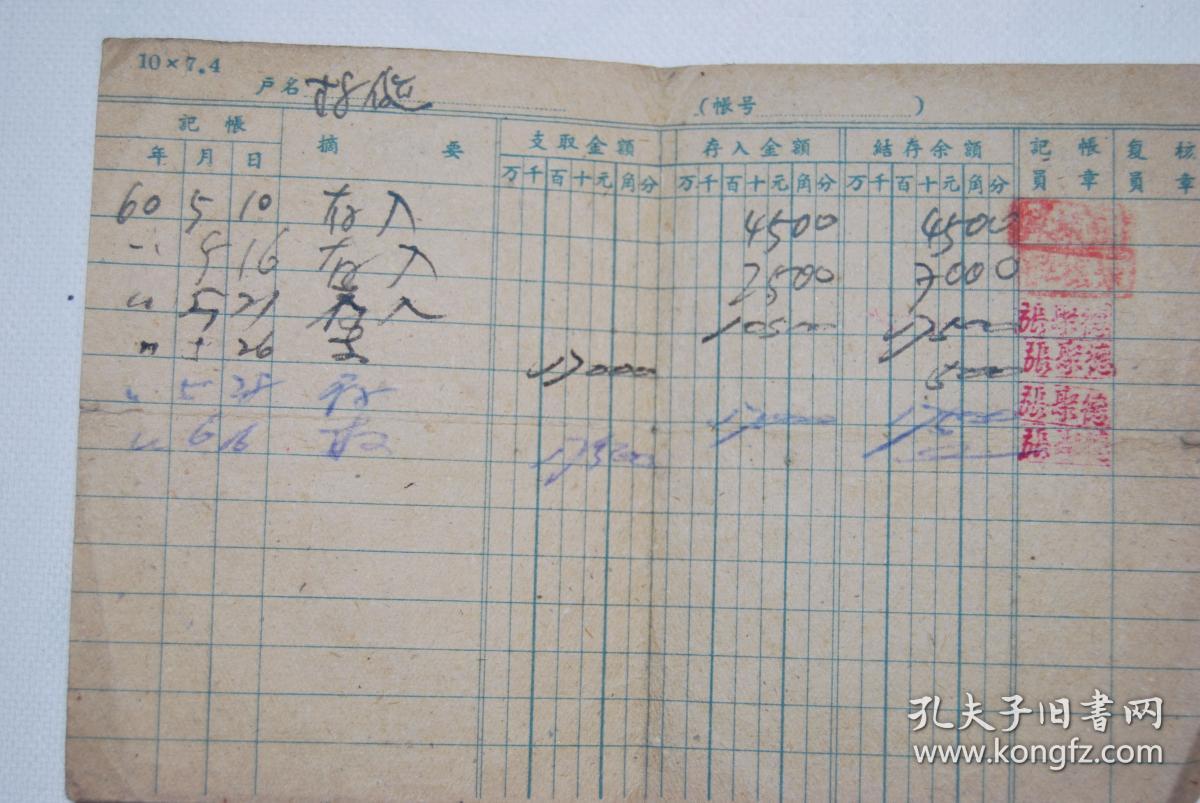 10×7.4
户名
(帳号 )
記帳 摘要 支取金額 存入金額 結存余額 記帳員章 复核員章
年 月 日 万千百十元角分 万千百十元角分 万千百十元角分
60 5 10 存入 4500 4500
〃 5 16 存入 2500 7000
〃 5 21 存入 張聚德
〃 5 26 支 17000 張聚德
〃 5 張聚德
〃 6 16 張聚德
孔夫子旧書网
www.kongfz.com